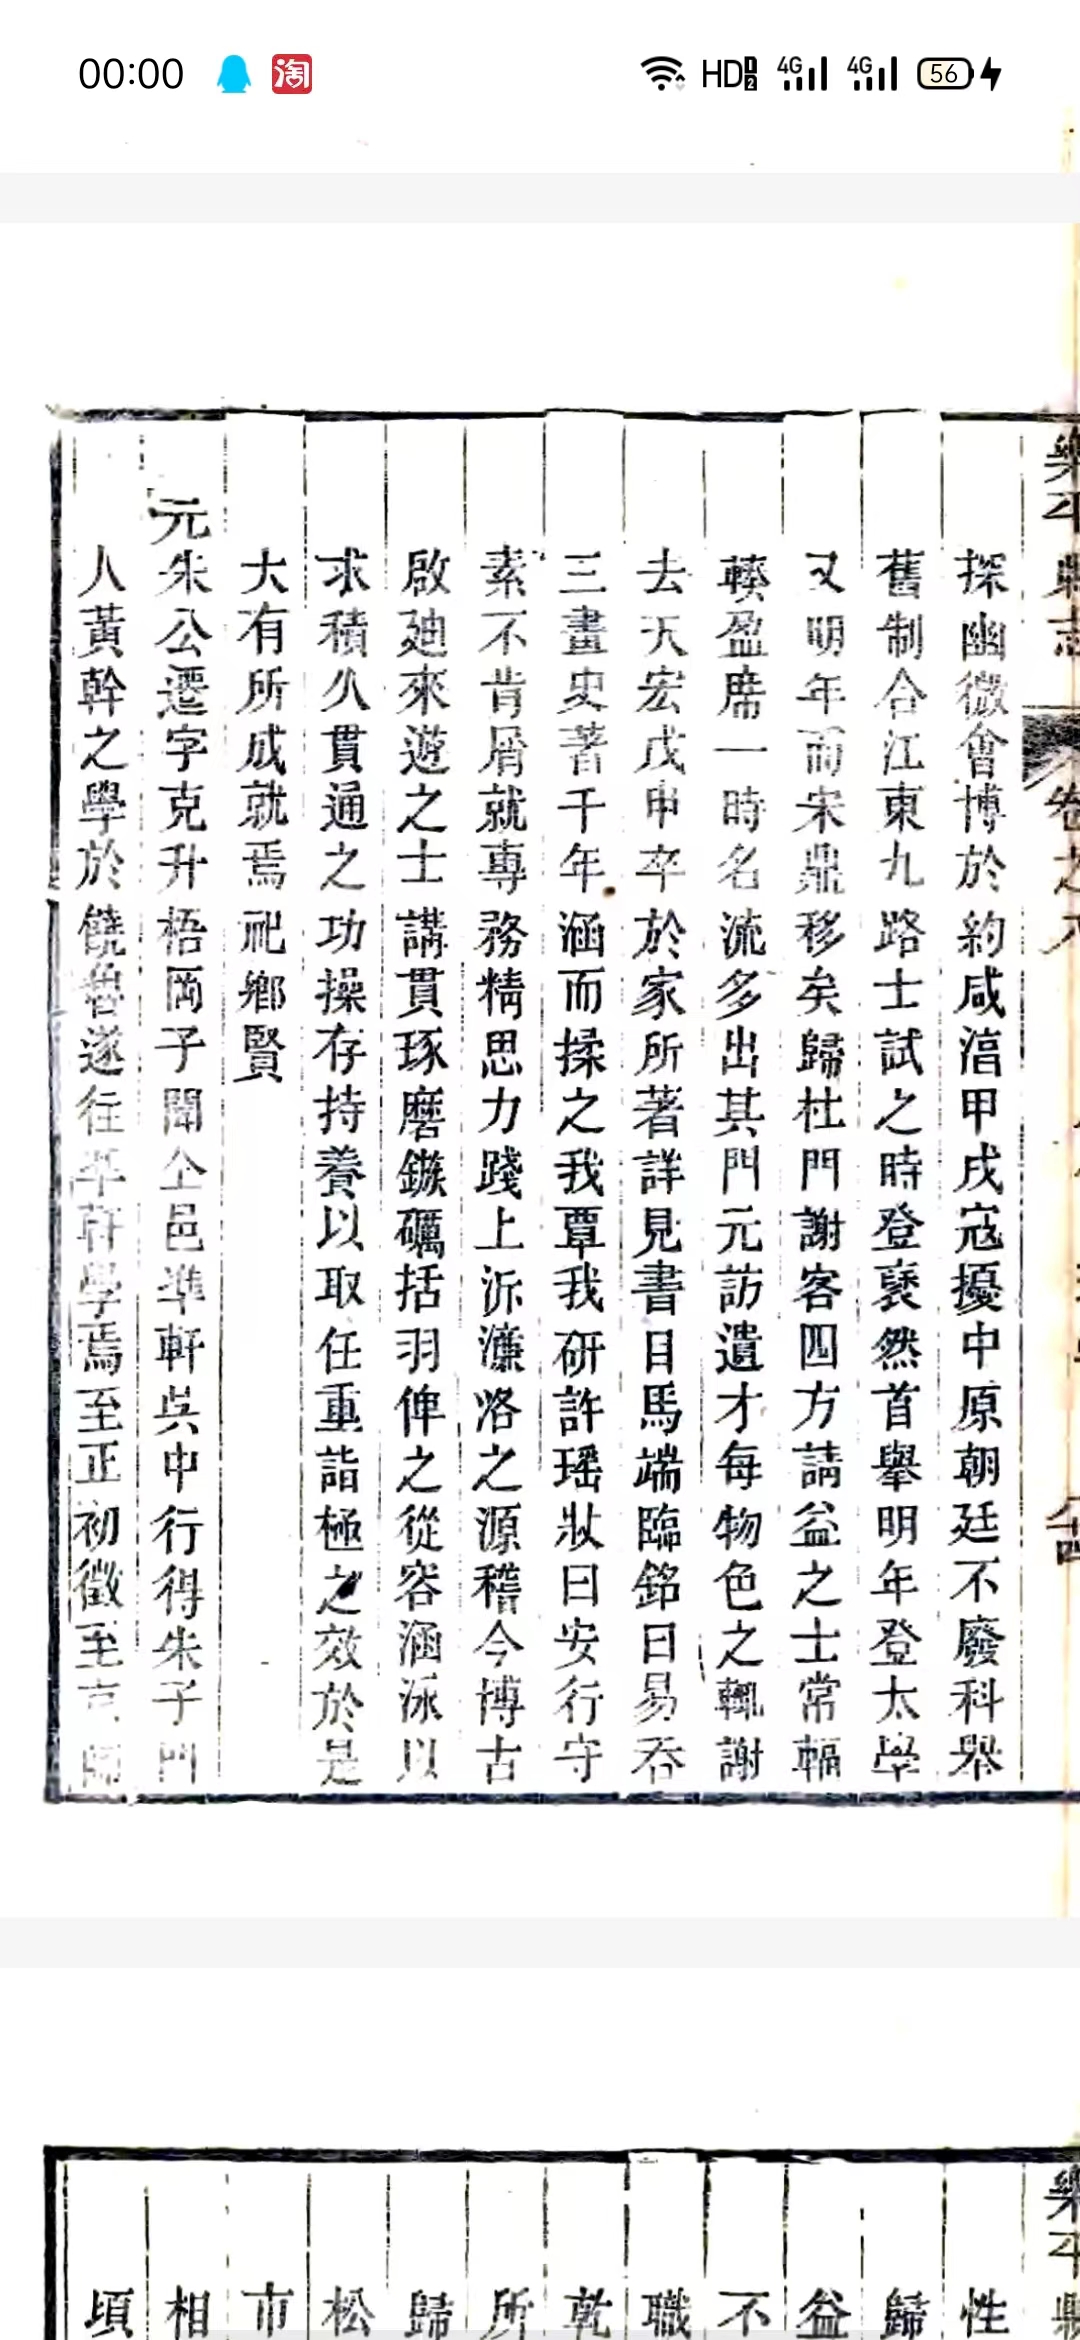 00:00
淘
HD 1 2 4G 4G 56
樂平縣志
卷之八
探幽微會博於約咸淳甲戌寇擾中原朝廷不廢科舉
舊制合江東九路士試之時登裒然首舉明年登太學
又明年而宋鼎移矣歸杜門謝客四方請益之士常輻
輳盈席一時名流多出其門元訪遺才每物色之輒謝
去天宏戊申卒於家所著詳見書目馬端臨銘曰易吞
三畫史著千年涵而揉之我覃我研許瑶狀曰安行守
素不肯屑就專務精思力踐上泝濂洛之源稽今博古
啟廸來遊之士講貫琢磨鏃礪括羽俾之從容涵泳以
求積久貫通之功操存持養以取任重詣極之效於是
大有所成就焉祀鄉賢
元朱公遷字克升梧岡子聞仝邑準軒吳中行得朱子門
人黃幹之學於饒魯遂往凖軒學焉至正初徵至京師
樂平縣
性
歸
益
不
職
乾
所
歸
松
市
相
頃